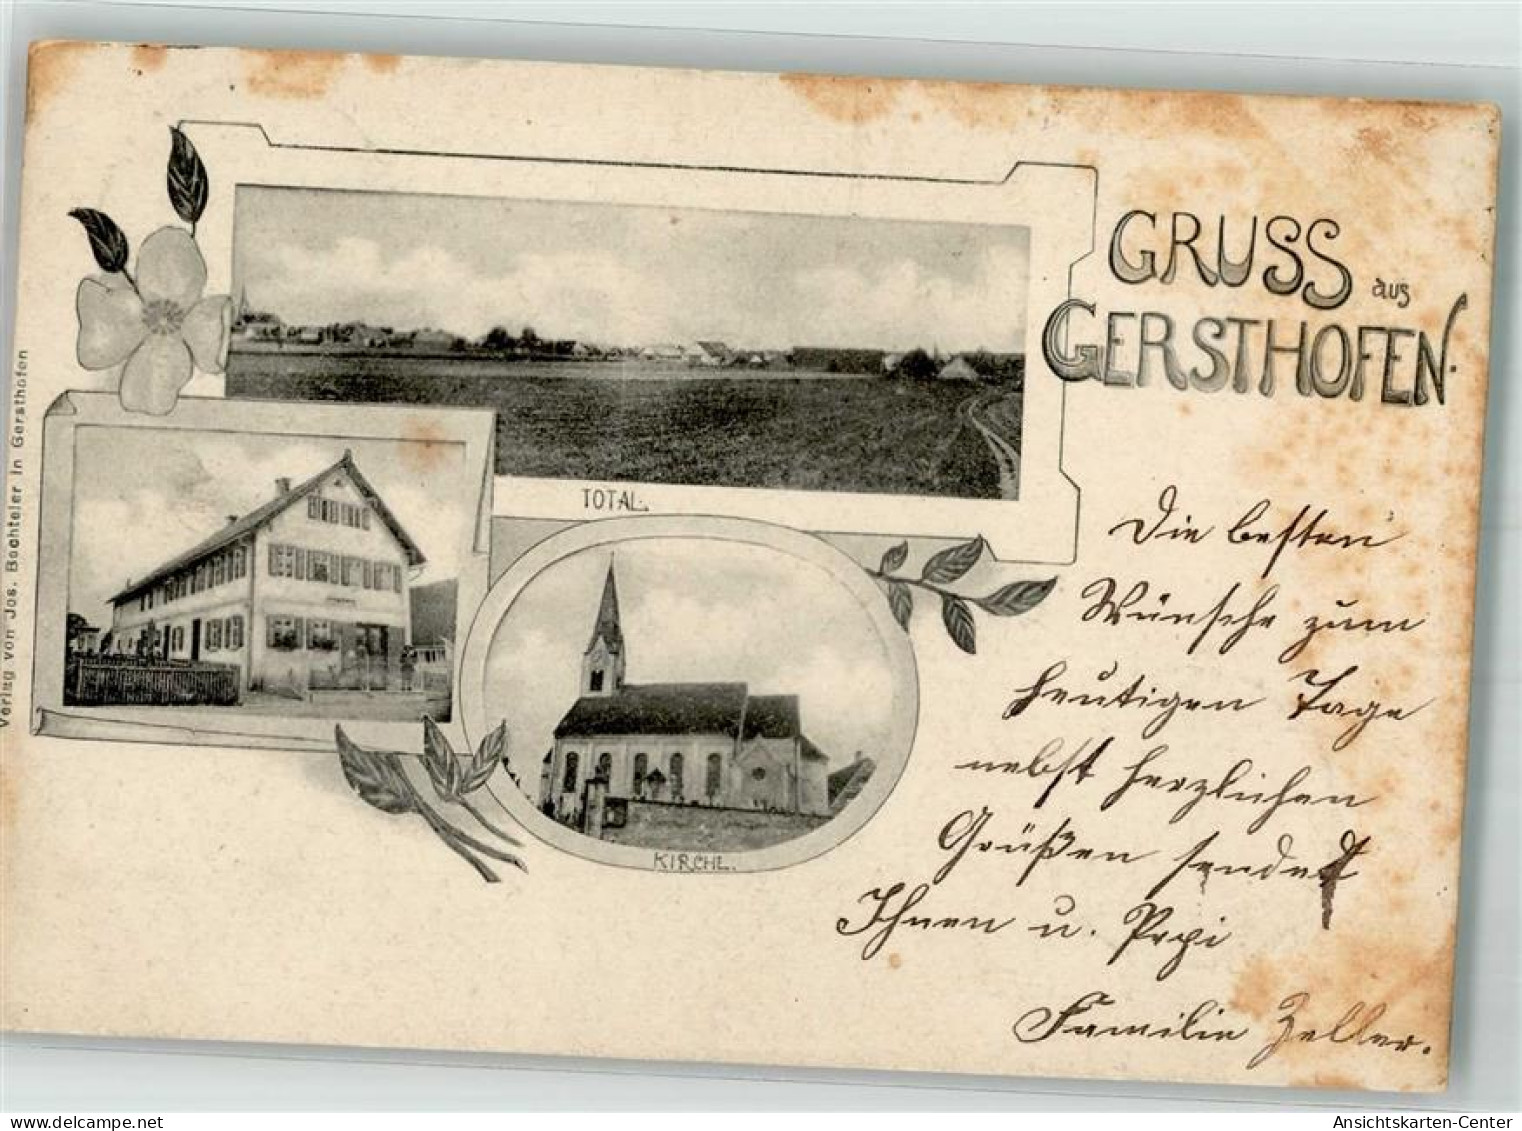 GRUSS aus
GERSTHOFEN.
TOTAL.
KIRCHE.
Verlag von Jos. Bechteler in Gersthofen
Die besten
Wünsche zum
heutigen Tage
nebst herzlichen
Grüßen sendet
Ihnen u.
Familie Zeller.
Ansichtskarten-Center